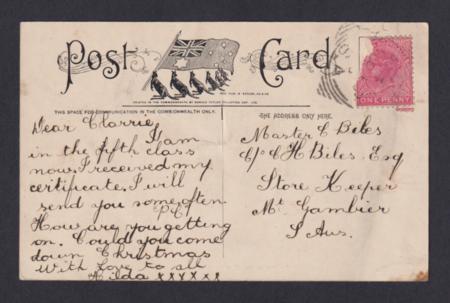 Post Card
PRINTED IN THE COMMONWEALTH BY
THIS SPACE FOR COMMUNICATION IN THE COMMONWEALTH ONLY.
THE ADDRESS ONLY HERE.
ONE PENNY
Dear Clarrie,
I am
in the fifth class
now. I received my
certificate. I will
send you some often.
P.C.
How are you getting
on. Could you come
down Christmas
With love to all
Hilda x x x x x x
Master C Biles
C/o C H Biles. Esq
Store Keeper
Mt. Gambier
S Aus.